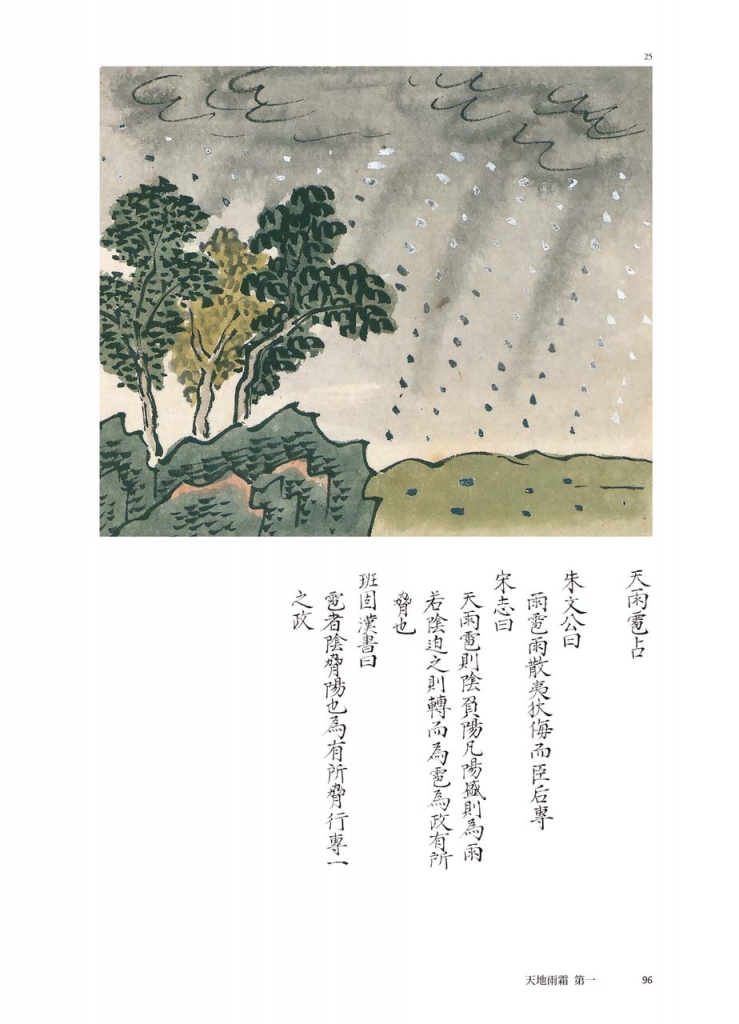 25
天雨雹占
朱文公曰
雨雹雨散夷狄侮而臣后專
宋志曰
天雨雹則陰負陽凡陽盛則為雨
若陰迫之則轉而為雹為政有所
脅也
班固漢書曰
雹者陰脅陽也為有所脅行專一
之政
天地雨霜 第一 96